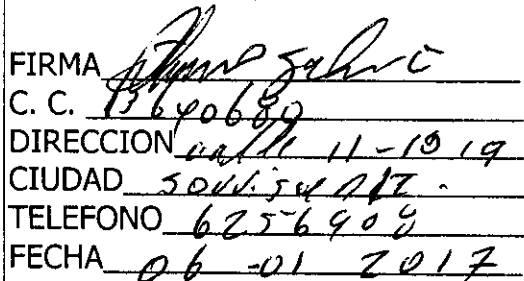 FIRMA
C. C. 13640680
DIRECCION calle 11-19 19
CIUDAD
TELEFONO 6256908
FECHA 06-01 2017